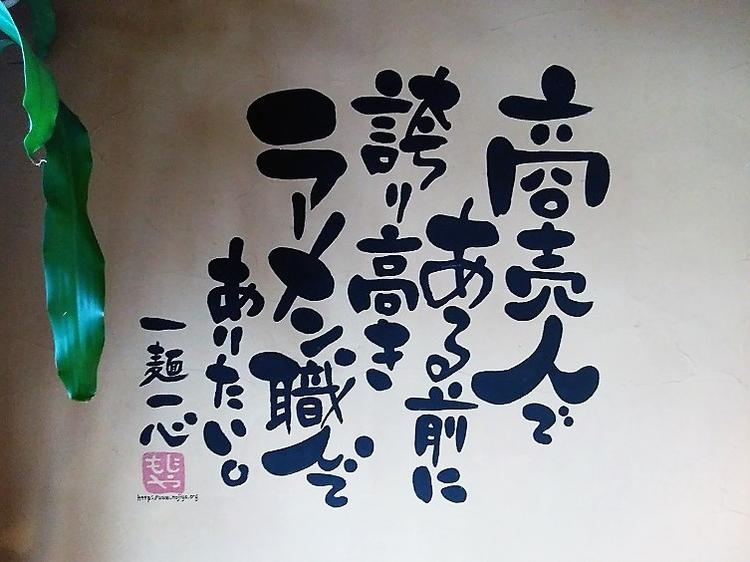 商売人で
ある前に
誇り高き
ラーメン職人で
ありたい。
一麺一心
もじやっ製
http://www.mojiya.org